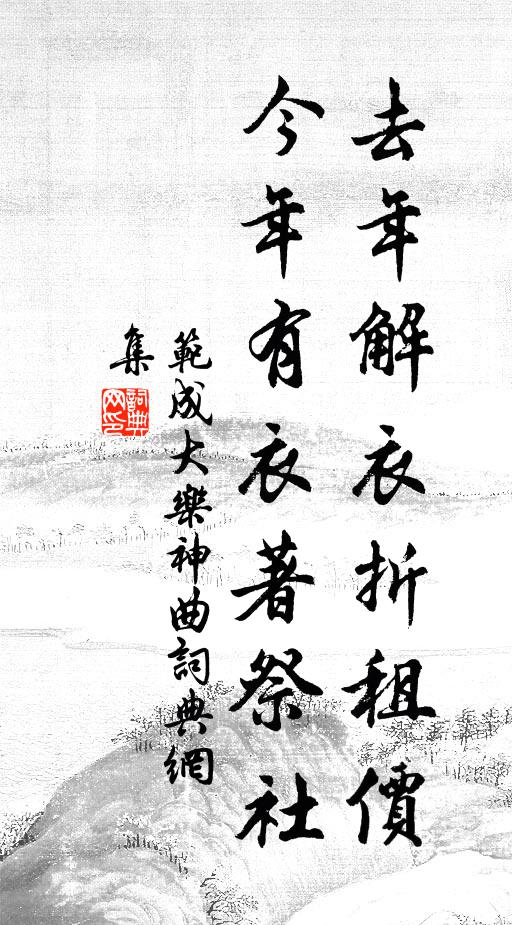 去年解衣折租價
今年有衣著祭社
範成大樂神曲詞典網
集
詞典網印